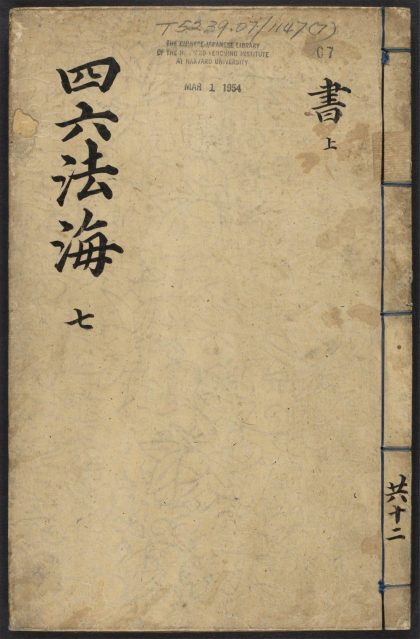 T5239.07/1147(7)
THE CHINESE-JAPANESE LIBRARY
OF THE HARVARD-YENCHING INSTITUTE
AT HARVARD UNIVERSITY
MAR 1 1954
07
書
上
四六法海
七
共十二